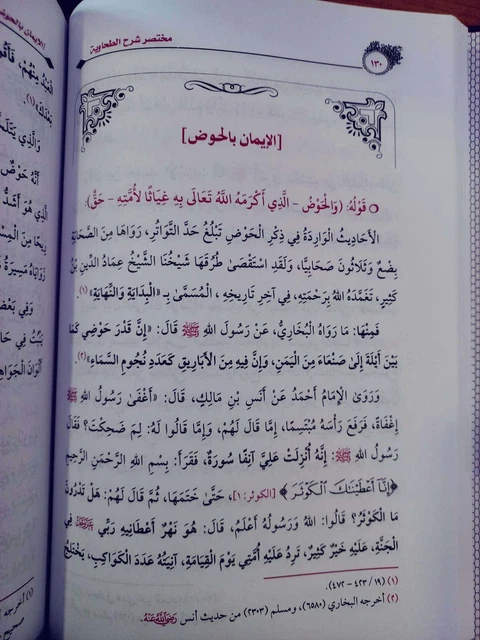 مختصر شرح الطحاوية
١٣٠
[الإيمان بالحوض]
قَوْلُهُ: (وَالْحَوْضُ - الَّذِي أَكْرَمَهُ اللَّهُ تَعَالَى بِهِ غِيَاثًا لأُمَّتِهِ - حَقٌّ):
الأَحَادِيثُ الْوَارِدَةُ فِي ذِكْرِ الْحَوْضِ تَبْلُغُ حَدَّ التَّوَاتُرِ، رَوَاهَا مِنَ الصَّحَابَةِ
بِضْعٌ وَثَلَاثُونَ صَحَابِيًّا، وَلَقَدِ اسْتَقْصَى طُرُقَهَا شَيْخُنَا الشَّيْخُ عِمَادُ الدِّينِ بْنُ
كَثِيرٍ، تَغَمَّدَهُ اللَّهُ بِرَحْمَتِهِ، فِي آخِرِ تَارِيخِهِ، الْمُسَمَّى بِـ «الْبِدَايَةِ وَالنِّهَايَةِ»(١).
فَمِنْهَا: مَا رَوَاهُ الْبُخَارِيُّ، عَنْ رَسُولِ اللهِ ﷺ قَالَ: «إِنَّ قَدْرَ حَوْضِي كَمَا
بَيْنَ أَيْلَةَ إِلَى صَنْعَاءَ مِنَ الْيَمَنِ، وَإِنَّ فِيهِ مِنَ الأَبَارِيقِ كَعَدَدِ نُجُومِ السَّمَاءِ»(٢).
وَرَوَى الإِمَامُ أَحْمَدُ عَنْ أَنَسِ بْنِ مَالِكٍ، قَالَ: «أَغْفَى رَسُولُ اللهِ ﷺ
إِغْفَاءَةً، فَرَفَعَ رَأْسَهُ مُبْتَسِمًا، إِمَّا قَالَ لَهُمْ، وَإِمَّا قَالُوا لَهُ: لِمَ ضَحِكْتَ؟ فَقَالَ
رَسُولُ اللهِ ﷺ: إِنَّهُ أُنْزِلَتْ عَلَيَّ آنِفًا سُورَةٌ، فَقَرَأَ: بِسْمِ اللهِ الرَّحْمَنِ الرَّحِيمِ
﴿إِنَّا أَعْطَيْنَاكَ الْكَوْثَرَ﴾ [الكوثر: ١]، حَتَّى خَتَمَهَا، ثُمَّ قَالَ لَهُمْ: هَلْ تَدْرُونَ
مَا الْكَوْثَرُ؟ قَالُوا: اللهُ وَرَسُولُهُ أَعْلَمُ، قَالَ: هُوَ نَهْرٌ أَعْطَانِيهِ رَبِّي عَزَّوَجَلَّ فِي
الْجَنَّةِ، عَلَيْهِ خَيْرٌ كَثِيرٌ، تَرِدُ عَلَيْهِ أُمَّتِي يَوْمَ الْقِيَامَةِ، آنِيَتُهُ عَدَدَ الْكَوَاكِبِ، يَخْتَلِجُ
(١) (١٩/ ٤٢٣ - ٤٧٢).
(٢) أخرجه البخاري (٦٥٨٠)، ومسلم (٢٣٠٣) من حديث أنس رَضِيَ اللَّهُ عَنْهُ.
الإيمان بالحوض
الْعَبْدُ مِنْهُمْ،
وَالَّذِي
أَنَّهُ حَوْضٌ
الَّذِي هُوَ أَشَدُّ
رِيحًا مِنَ
زَوَايَاهُ مَسِيرَةُ
وَفِي
(١) أخرجه
صحيح